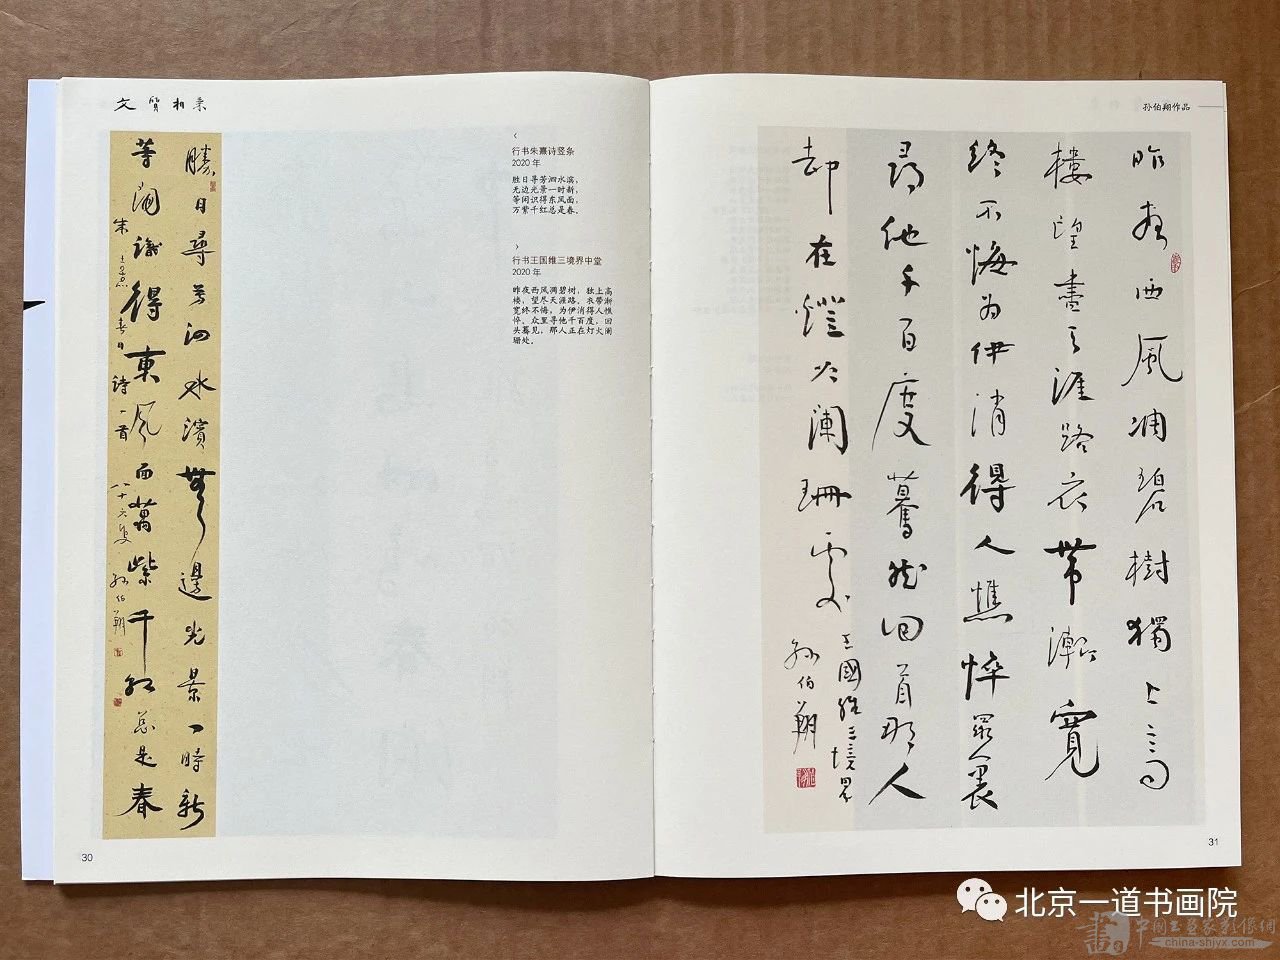 文 質 相
勝日尋芳泗水濱無邊光景一時新
等閒識得東風面萬紫千紅總是春
朱熹春日詩一首 八十六叟 孫伯翔
行书朱熹诗竖条
2020 年
胜日寻芳泗水滨，
无边光景一时新，
等闲识得东风面，
万紫千红总是春。
行书王国维三境界中堂
2020 年
昨夜西风凋碧树，独上高
楼，望尽天涯路。衣带渐
宽终不悔，为伊消得人憔
悴。众里寻他千百度，回
头蓦见，那人正在灯火阑
珊处。
30
孙伯翔作品
昨夜西風凋碧樹獨上高
樓望盡天涯路衣帶漸寬
終不悔為伊消得人憔悴眾裏
尋他千百度驀然回首那人
却在燈火闌珊處
王國維三境界
孫伯翔
31
北京一道书画院
中國書画家影像網
china-shjyx.com